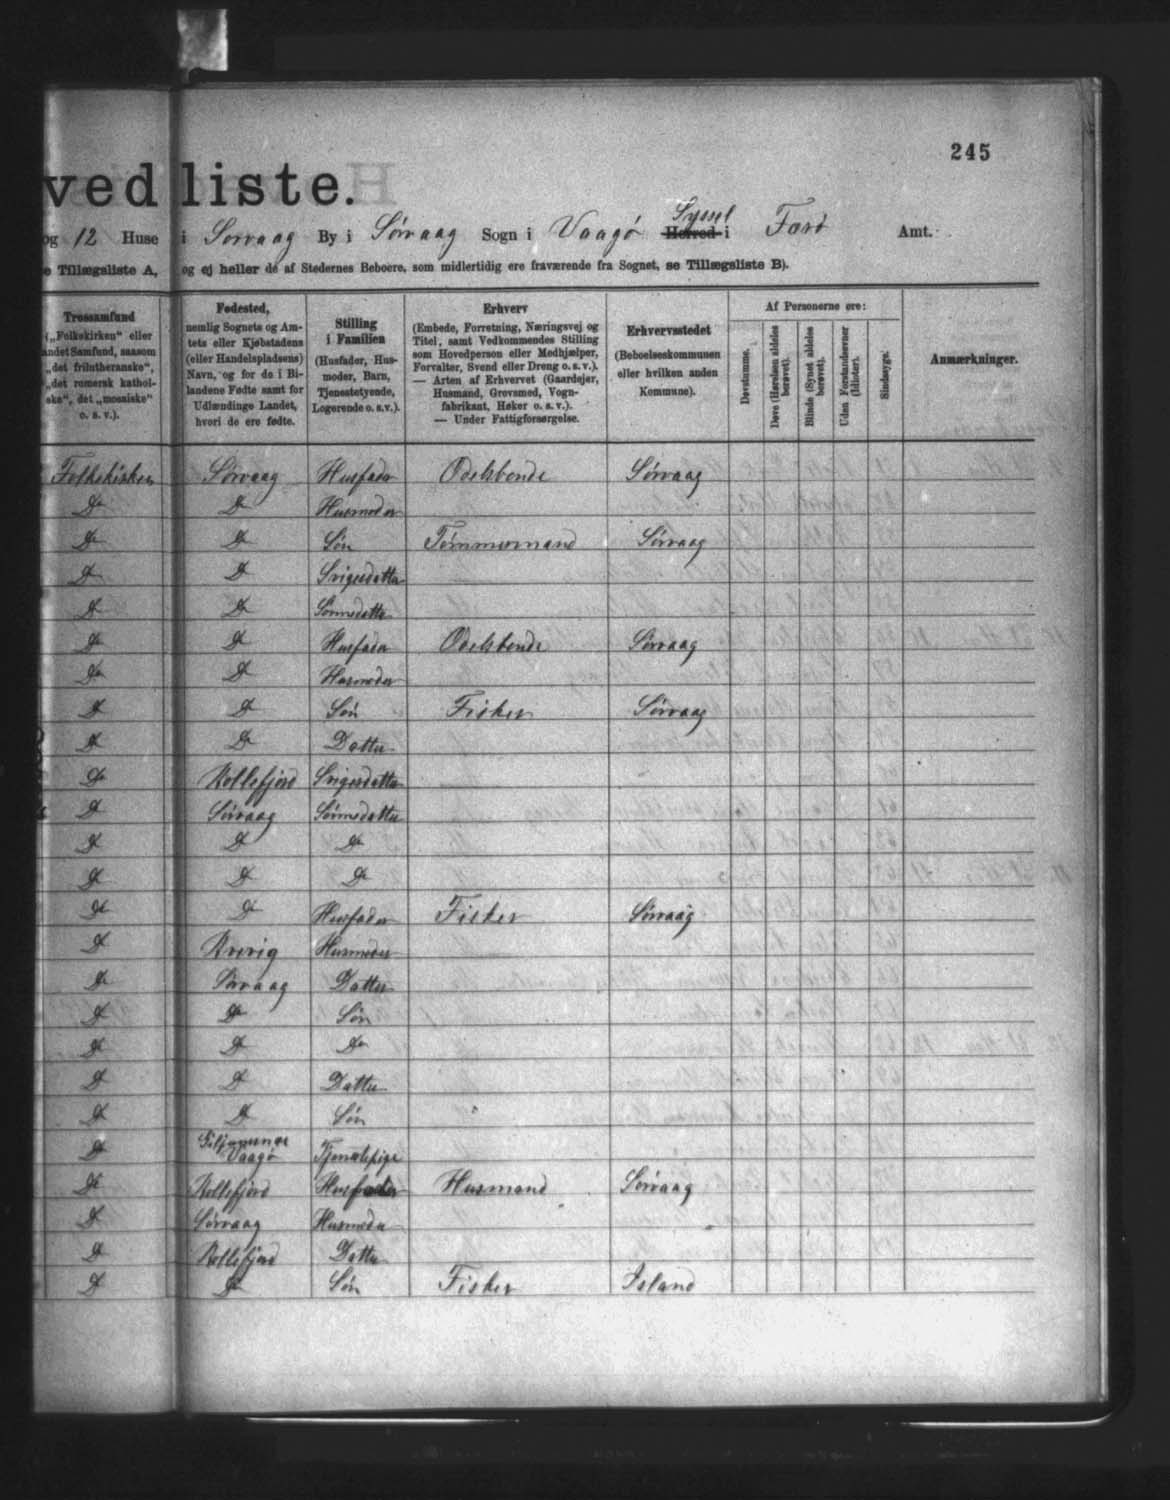 245
ved liste.
og 12 Huse i Sørvaag By i Sørvaag Sogn i Vaagø Herred Syssel i Færø Amt.
e Tillægsliste A, og ej heller de af Stedernes Beboere, som midlertidig ere fraværende fra Sognet, se Tillægsliste B).
Trossamfund
(„Folkekirken“ eller
andet Samfund, saasom
„det frilutheranske“,
„det romersk kathol-
ske“, det „mosaiske“
o. s. v.).
Fødested,
nemlig Sognets og Am-
tets eller Kjøbstadens
(eller Handelspladsens)
Navn, og for de i Bi-
landene Fødte samt for
Udlændinge Landet,
hvori de ere fødte.
Stilling
i Familien
(Husfader, Hus-
moder, Barn,
Tjenestetyende,
Logerende o. s. v.).
Erhverv
(Embede, Forretning, Næringsvej og
Titel, samt Vedkommendes Stilling
som Hovedperson eller Medhjælper,
Forvalter, Svend eller Dreng o. s. v.).
— Arten af Erhvervet (Gaardejer,
Husmand, Grovsmed, Vogn-
fabrikant, Høker o. s. v.).
— Under Fattigforsørgelse.
Erhvervsstedet
(Beboelseskommunen
eller hvilken anden
Kommune).
Af Personerne ere:
Døvstumme.
Døve (Hørelsen aldeles
berøvet).
Blinde (Synet aldeles
berøvet).
Uden Forstandsevner
(Idioter).
Sindssyge.
Anmærkninger.
Folkekirken Sørvaag Husfader Odelsbonde Sørvaag
Do Do Husmoder
Do Do Søn Tømmermand Sørvaag
Do Do Svigerdatter
Do Do Sønnedatter
Do Do Husfader Odelsbonde Sørvaag
Do Do Husmoder
Do Do Søn Fisker Sørvaag
Do Do Datter
Do Kollefjord Svigerdatter
Do Sørvaag Sønnedatter
Do Do Do
Do Do Do
Do Do Husfader Fisker Sørvaag
Do Kvivig Husmoder
Do Sørvaag Datter
Do Do Søn
Do Do Do
Do Do Datter
Do Do Søn
Do Vaagø Tjenestepige
Do Kollefjord Husfader Husmand Sørvaag
Do Sørvaag Husmoder
Do Kollefjord Datter
Do Do Søn Fisker Island